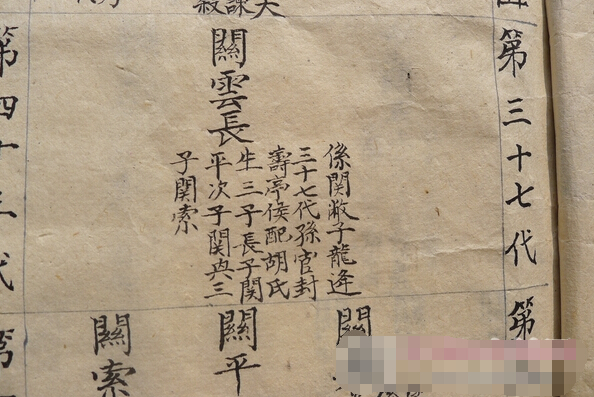 第三十七代
關雲長
係関敝子龍逄
三十七代孫官封
壽亭侯配胡氏
生三子長子関
平次子関與三
子関索
第四十三代
第
關
關平
關索